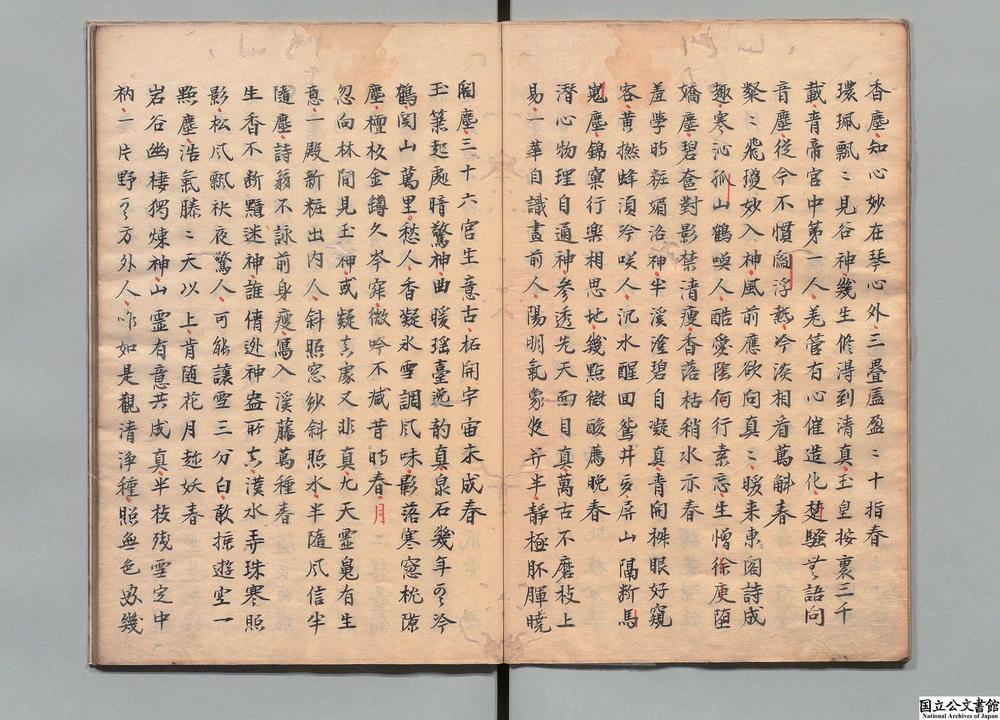 香塵知心妙在琴心外三疊盧盈〻十指春
環珮飄〻見谷神幾生脩得到清真玉皇按裏三千
載青帝宮中第一人羌管有心催造化楚騷無語問
音塵從今不慣閻浮熱冷淡相看萬斛春
粲〻飛瓊妙入神風前應欲向真〻暖来東閣詩成
趣寒沁孤山鶴唳人酷愛陰何行素忘生憎徐庾堕
嬌塵碧奩對影禁清痩香落枯稍水亦春
羞學时粧媚洛神半溪澄碧自凝真青開桝眼好窺
客黄撚蜂須冷咲人沉水醒回鴛井亥屏山隔断馬
嵬塵錦窠行樂相思地幾點微酸薦晩春
潜心物理自通神参透先天面目真萬古不磨枝上
易一華自識畫前人陽明氣象 半靜極胚暉曉
闔塵三十六宮生意古柘開宇宙未成春
玉篴起處暗驚神曲暖瑶臺逸韵真泉石幾年可冷
鶴関山萬里愁人香凝氷雪調風味影落寒窓桃隙
塵檀板金罇久岑寂微吟不减昔时春月
忽向林間見玉神或疑真處又非真九天靈鬼有生
意一殿新粧出内人斜照窓紗斜照水半隨風信半
隨塵詩翁不詠前身瘦寫入溪藤萬種春
生香不断黯迷神誰倩逃神盎所真漢水弄珠寒照
影松風飄袂夜驚人可能讓雪三分白敢掠遊空一
點塵浩氣滕〻天以上肯随花月趂妖春
岩谷幽棲獨煉神山靈有意共成真半枝残雪定中
衲一片野雲方外人咋如是觀清淨種照無色 幾
国立公文書館
National Archives of Japan